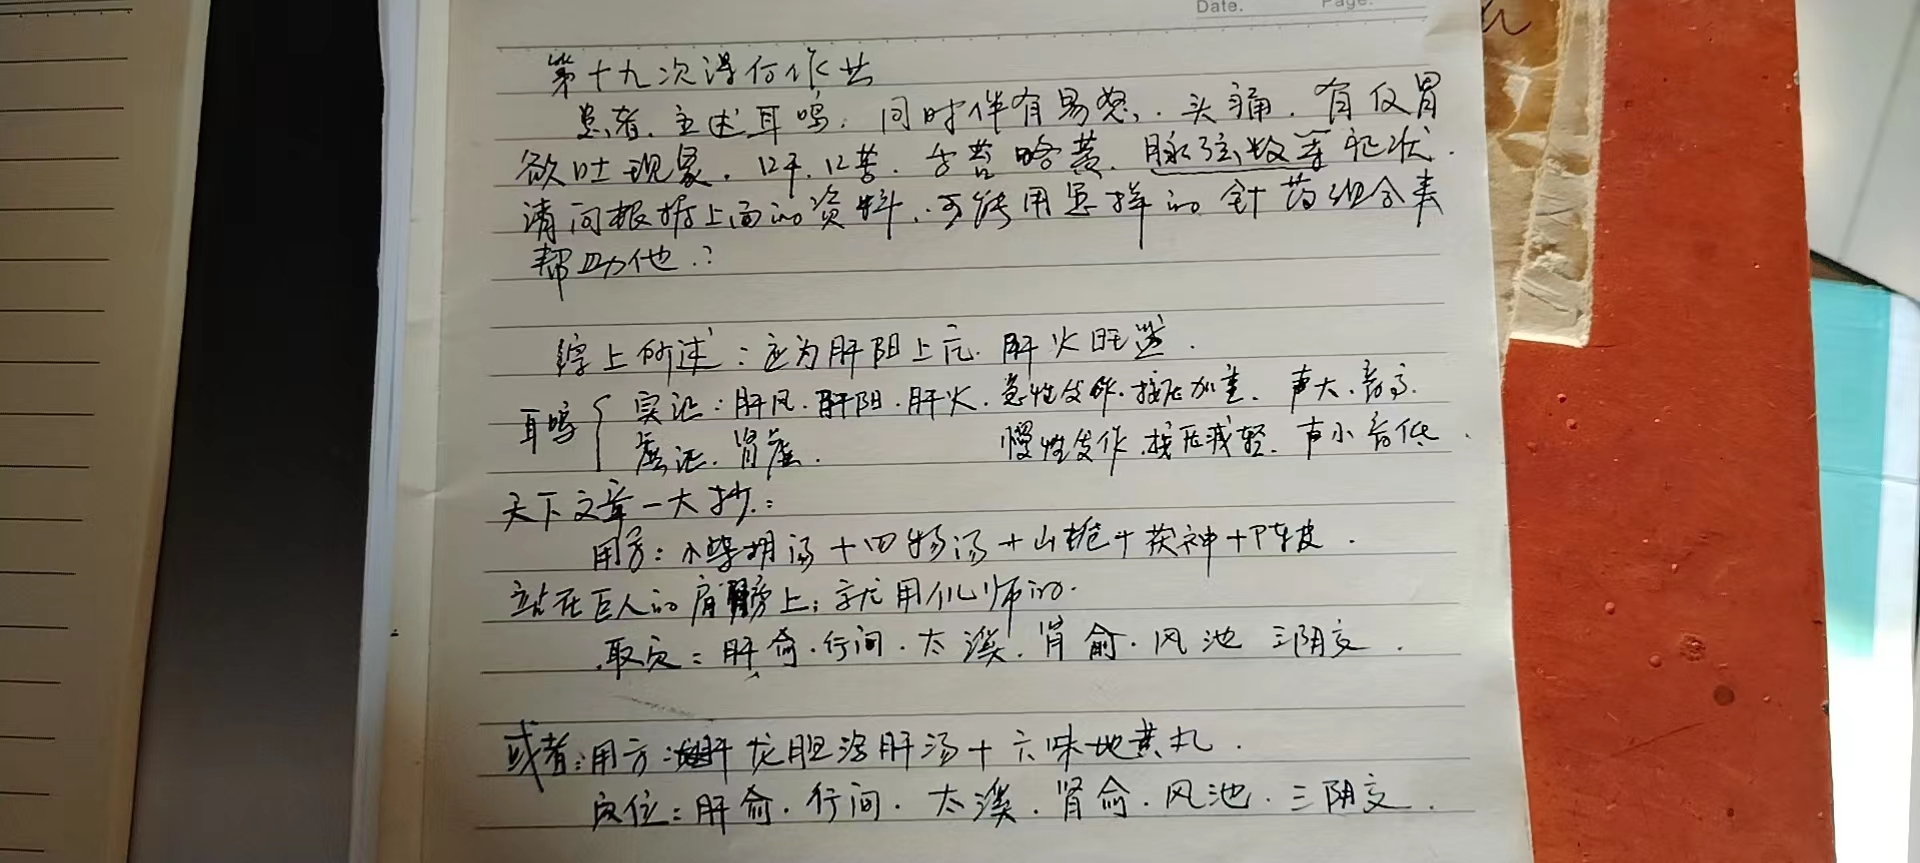 Date. Page.
第十九次课何作业
患者,主述耳鸣,同时伴有易怒、头痛,有反胃
欲吐现象,口干,口苦,舌苔略黄,脉弦数等症状.
请问根据上面的资料,可能用怎样的针药组合来
帮助他.?
综上所述:应为肝阳上亢.肝火旺盛.
耳鸣 实证:肝风.肝阳.肝火.急性发作.按压加重.声大.音高.
虚证.肾虚. 慢性发作.按压减轻.声小音低.
天下文章一大抄:
用方:小柴胡汤+四物汤+山栀+茯神+陈皮.
站在巨人的肩膀上;就用倪师的.
取穴:肝俞.行间.太溪.肾俞.风池 三阴交.
或者:用方:龙胆泻肝汤+六味地黄丸.
穴位:肝俞.行间.太溪.肾俞.风池.三阴交.